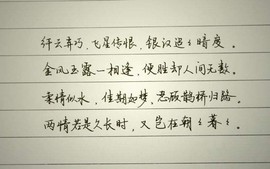 纤云弄巧，飞星传恨，银汉迢〻暗度。
金风玉露一相逢，便胜却人间无数。
柔情似水，佳期如梦，忍顾鹊桥归路。
两情若是久长时，又岂在朝〻暮〻。